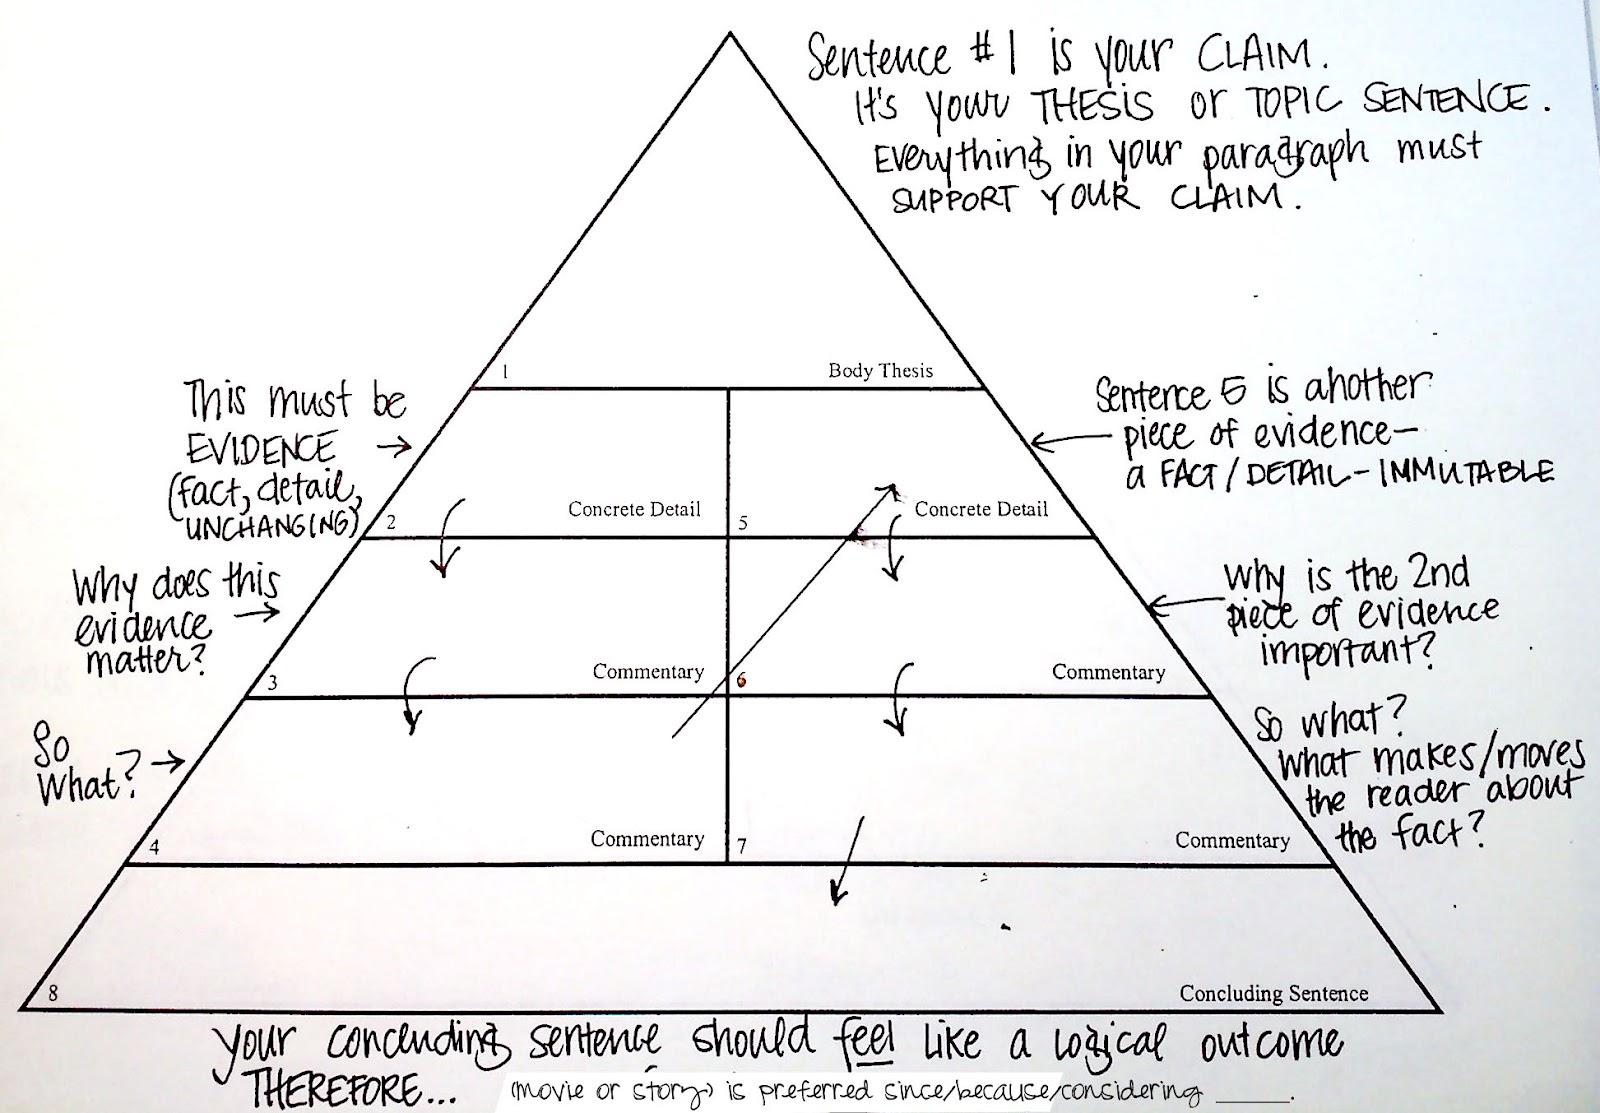 Sentence #1 is your CLAIM.
It's your THESIS or TOPIC SENTENCE.
Everything in your paragraph must
SUPPORT YOUR CLAIM.
1 Body Thesis
This must be
EVIDENCE
(fact, detail,
UNCHANGING)
Sentence 5 is another
piece of evidence—
a FACT/DETAIL-IMMUTABLE
2 Concrete Detail
5 Concrete Detail
Why does this
evidence
matter?
Why is the 2nd
piece of evidence
important?
3 Commentary
6 Commentary
So
What?
So what?
What makes/moves
the reader about
the fact?
4 Commentary
7 Commentary
8 Concluding Sentence
Your concluding sentence should feel like a logical outcome
THEREFORE...
(movie or story) is preferred since/because/considering ______.